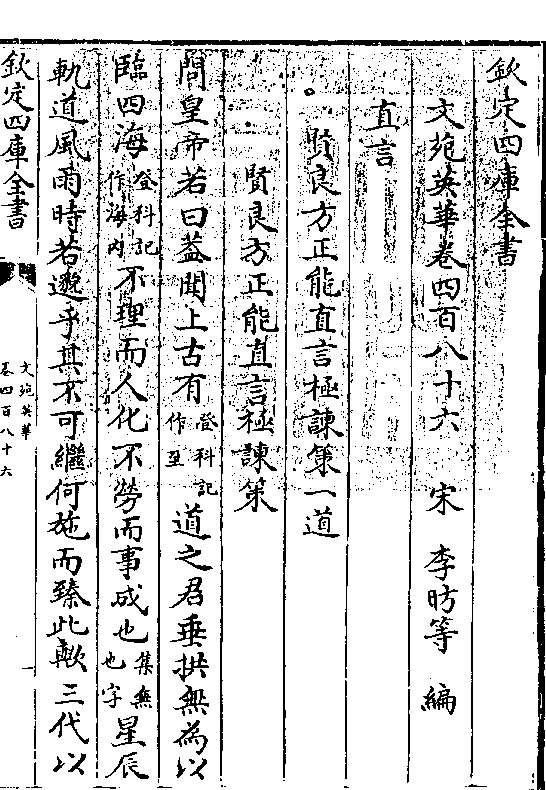 欽定四庫全書
文苑英華卷四百八十六　宋　李昉等　編
直言
賢良方正能直言極諫策一道
賢良方正能直言極諫策
問皇帝若曰蓋聞上古有登科記作至道之君垂拱無為以
臨四海登科記作海内不理而人化不勞而事成也集無也字星辰
軌道風雨時若邈乎其不可繼何施而臻此歟三代以
欽定四庫全書
文苑英華
卷四百八十六
一